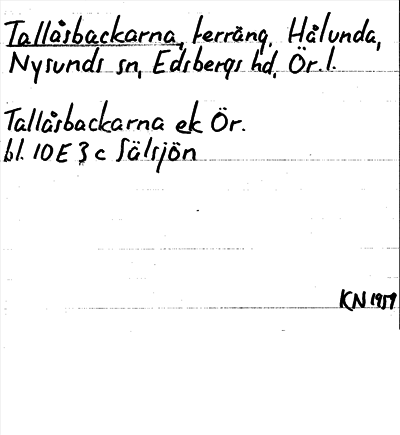 Tallåsbackarna, terräng, Hålunda,
Nysunds sn, Edsbergs hd, Ör. l.
Tallåsbackarna ek Ör.
bl. 10 E 3 c Sälsjön
KN 1959